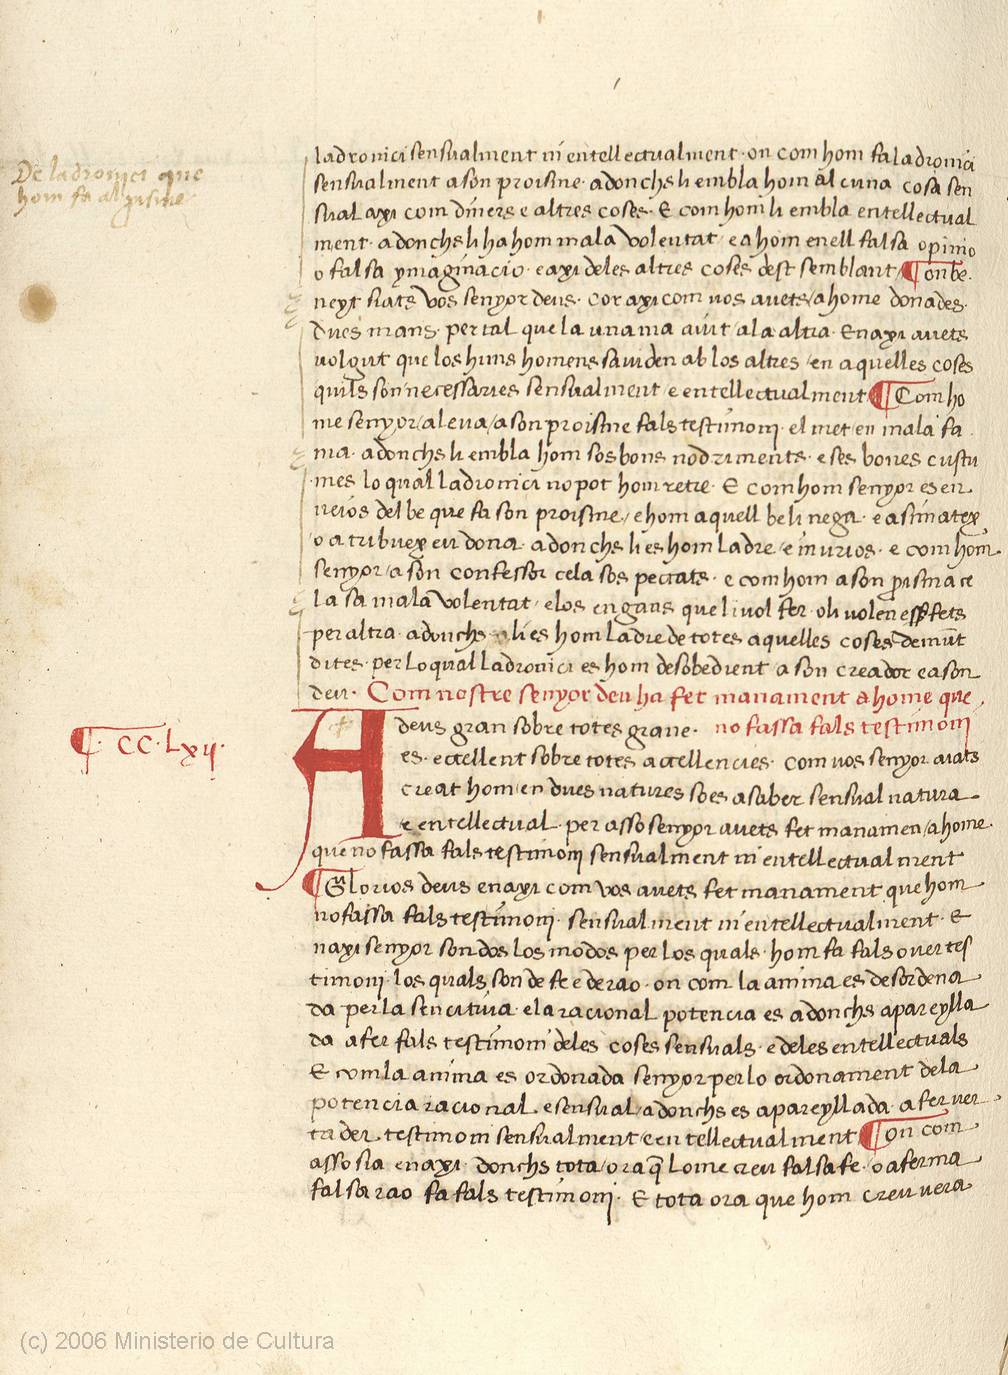 De ladronici que
hom fa al prisme
ladronici sensualment ni entellectualment · on com hom fa ladronici
sensualment a son proisme · adonchs li embla hom alcuna cosa sen
sual axi com diners e altres coses · E com hom li embla entellectual
ment · adonchs li ha hom mala volentat · e a hom en ell falsa opinio
o falsa ymaginacio · e axi de les altres coses dest semblant ¶ On be
neyt siats vos senyor deus · cor axi com vos avets / a home donades ·
dues mans · per tal que la una ma aiut / a la altra · Enaxi avets
volgut que los huns homens sa uiden ab los altres / en aquelles coses
quils son necessaries sensualment e entellectualment ¶ Com ho
me senyor / aleva / a son proisme fals testimoni · el met en mala fa
ma · adonchs li embla hom sos bons nodriments · e ses bones custu
mes lo qual ladronici no pot hom retre · E com hom senyor es en
veios del be que fa son proisme / e hom aquell be li nega · e asimatex
o atribuex eu dona · adonchs li es hom ladre / e iniurios · e com hom
senyor / a son confessor cela sos peccats · e com hom a son prisma ce
la sa mala volentat · e los engans que li vol fer · oli volen esser fets
per altra · adonchs li es hom ladre de totes aquelles coses demunt
dites · per lo qual ladronici es hom desobedient a son creador e a son
deu · Com nostre senyor deu ha fet manament a home que
no fassa fals testimoni
¶ · CC · Lxij ·
A deus gran sobre totes grane ·
es · excellent sobre totes accellencies · com vos senyor aiats
creat hom / en dues natures so es a saber sensual natura
e entellectual · per asso senyor avets fet manamen / a home ·
que no fassa fals testimoni sensualment ni entellectualment
¶ Glorios deus enaxi com vos avets fet manament que hom
no fassa fals testimoni · sensualment ni entellectualment · E
naxi senyor son dos los modos per los quals · hom fa fals o ver tes
timoni · los quals son de fe e de rao · on com la anima es desordena
da per la sencitiva · e la racional potencia es adonchs apareylla
da a fer fals testimoni de les coses sensuals · e de les entellectuals
E com la anima es ordonada senyor per lo ordonament de la
potencia racional · e sensual / adonchs es apareyllada · a fer ver
tader · testimoni sensualment e entellectualment ¶ On com
asso sia enaxi · donchs tota / ora q̄ lome creu falsa fe · o aferma
falsa rao fa fals testimoni · E tota ora que hom creu vera
(c) 2006 Ministerio de Cultura